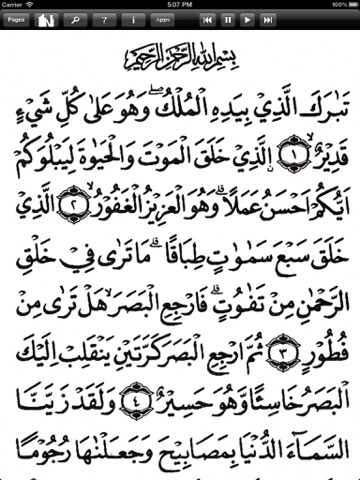 Carrier 5:07 PM 100%
Pages ? i Apps
بِسْمِ اللّٰهِ الرَّحْمٰنِ الرَّحِيْمِ
تَبٰرَكَ الَّذِيْ بِيَدِهِ الْمُلْكُ ۖ وَهُوَ عَلٰى كُلِّ شَيْءٍ
قَدِيْرٌ ۙ ﴿١﴾ الَّذِيْ خَلَقَ الْمَوْتَ وَالْحَيٰوةَ لِيَبْلُوَكُمْ
اَيُّكُمْ اَحْسَنُ عَمَلًا ۗ وَهُوَ الْعَزِيْزُ الْغَفُوْرُ ۙ ﴿٢﴾ الَّذِيْ
خَلَقَ سَبْعَ سَمٰوٰتٍ طِبَاقًا ۗ مَا تَرٰى فِيْ خَلْقِ
الرَّحْمٰنِ مِنْ تَفٰوُتٍ ۗ فَارْجِعِ الْبَصَرَ ۙ هَلْ تَرٰى مِنْ
فُطُوْرٍ ﴿٣﴾ ثُمَّ ارْجِعِ الْبَصَرَ كَرَّتَيْنِ يَنْقَلِبْ اِلَيْكَ
الْبَصَرُ خَاسِئًا وَّهُوَ حَسِيْرٌ ﴿٤﴾ وَلَقَدْ زَيَّنَّا
السَّمَآءَ الدُّنْيَا بِمَصَابِيْحَ وَجَعَلْنٰهَا رُجُوْمًا